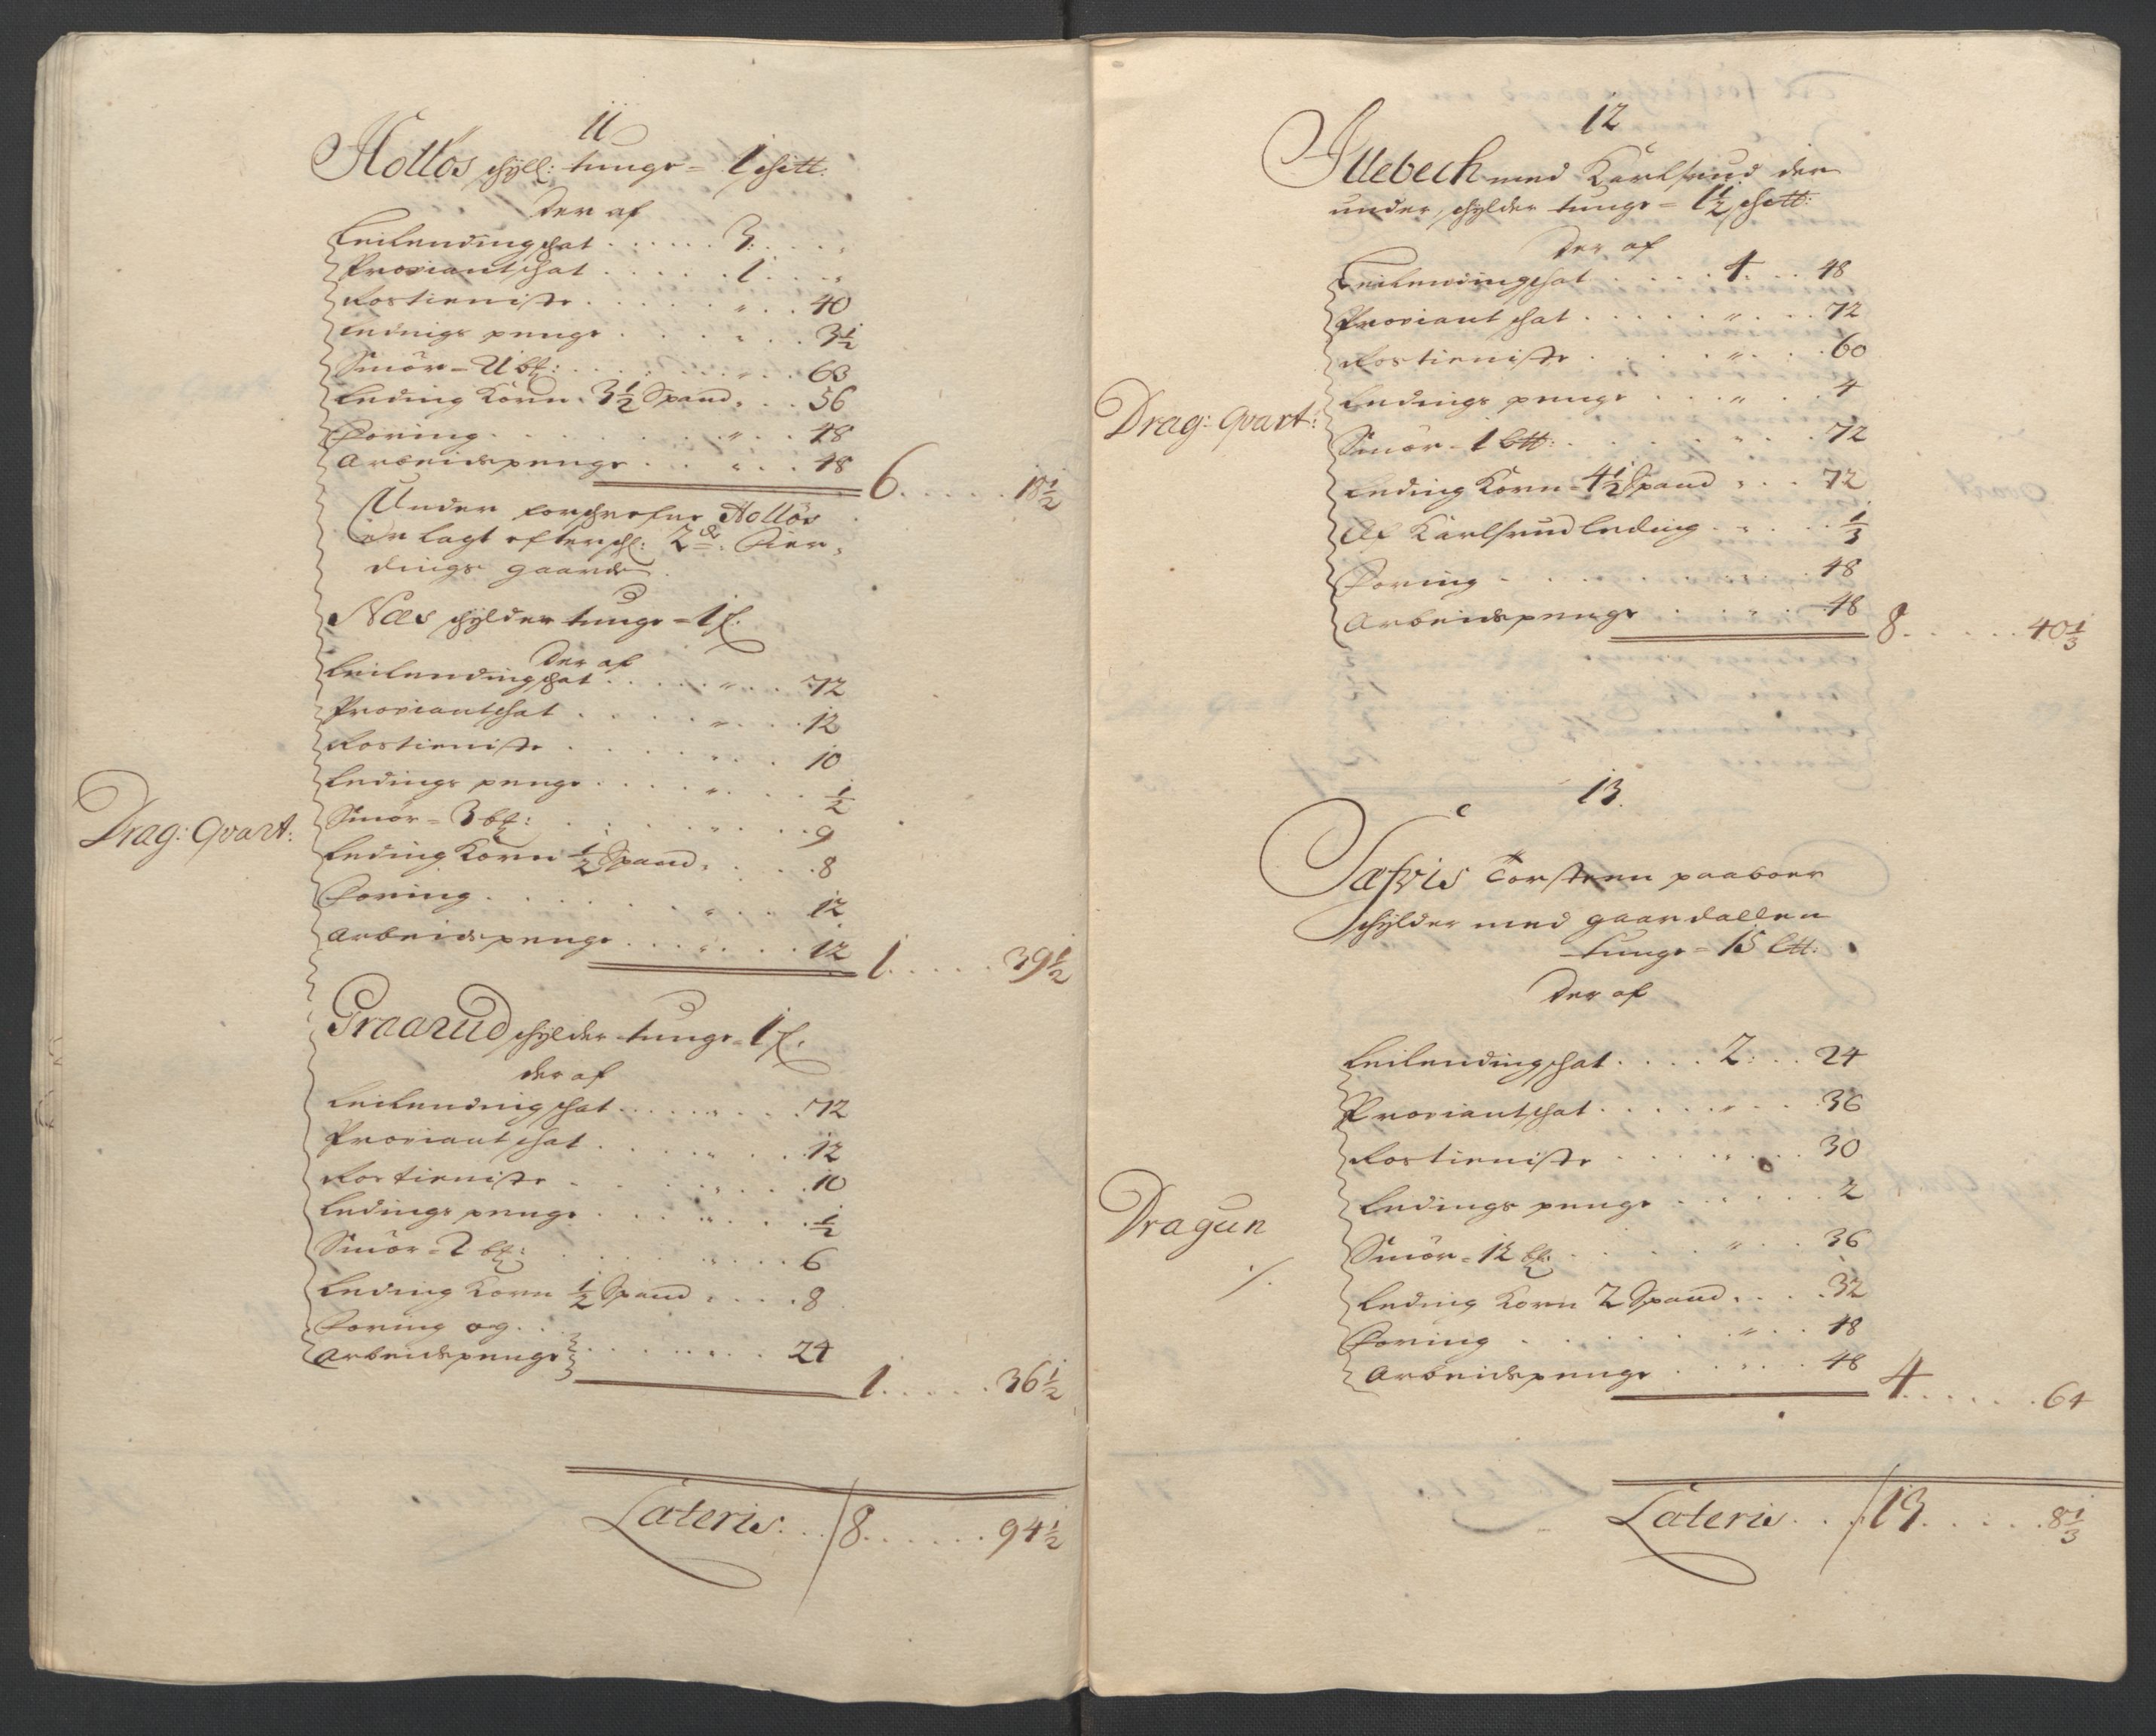 11
Hollos schyll: tunge = 1 schtt:
Der af
Leilendingschat . . . . . . 3: . . . „
Proviantschat . . . . . 1 . . . „
Rostieniste . . . . . „ . . 40
Ledings penge . . . . „ . . 3½
Smör = 21 bt: . . . . „ . . 63
Leding Korn . 3½ Spand . . . 56
Foring . . . . . . „ . . 48
Arbeidspenge . . . „ . . 48 6 . . . . . 18½
Under forschrefne Hollös
er lagt efterschl: 2de Fier„
dings gaarde
Næs schylder tunge = 1 f.
Der af
Leilendingschat . . . . „ . . 72
Proviantschat . . . . . „ . . 12
Rostieniste . . . . . „ . . 10
Ledings penge . . . . „ . . ½
Drag: Qvart: Smör = 3 bt: . . . . „ . . 9
Leding Korn ½ Spand . . . . 8
Foring . . . . . . „ . . 12
Arbeidspenge . . . „ . . 12 1 . . . . . 39½
Graarud schylder tunge = 1 f.
der af
Leilendingschat . . . . „ . . 72
Proviantschat . . . . „ . . 12
Rostieniste . . . . . „ . . 10
Ledings penge . . . . „ . . ½
Smör = 2 bt: . . . . „ . . 6
Leding Korn ½ Spand . . . . 8
Foring og . .
Arbeidspenge . . . . . . . 24
1 . . . . . 36½
Lateris . . . 8 . . . . . . 94½
12
Illebech med Karlsrud der
under, schylder tunge = 1½ schtt:
Der af
Leilendingschat . . . . . 4 . . . 48
Proviant schat . . . . . „ . . 72
Rostieniste . . . . . „ . . 60
Ledings penge . . . „ . . 4
Drag: Qvart: Smör = 1 btt: . . . . „ . . 72
Leding Korn = 4½ Spand „ . . 72
Af Karlsrud leding . „ . . ⅓
Foring . . . . . . . . . 48
Arbeidspenge . . . „ . . 48 8 . . . . . 40⅓
13.
Torsteen paaboer
schylder med gaardallen
tunge = 15 ltt:
Der af
Leilendingschat . . . . 2: . . 24
Proviantschat . . . . . „ . . 36
Rostieniste . . . . . „ . . 30
Ledings penge . . . . . . 2
Dragun
Smör = 12 bt: . . . . „ . . 36
./.
Leding Korn 2 Spand . . . 32
Foring . . . . . . „ . . 48
Arbeidspenge . . . „ . . 48 4 . . . . . . 64
Lateris . . . 13 . . . . . 8⅓